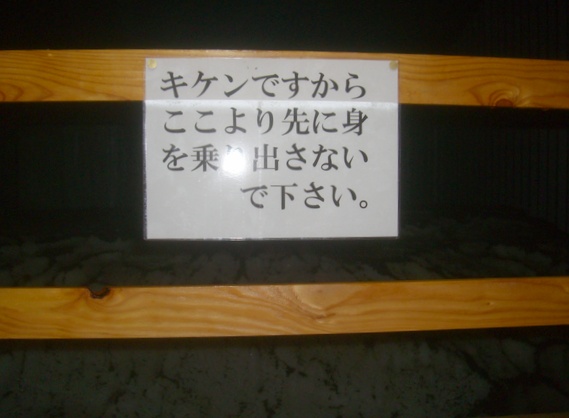 キケンですから
ここより先に身
を乗り出さない
で下さい。